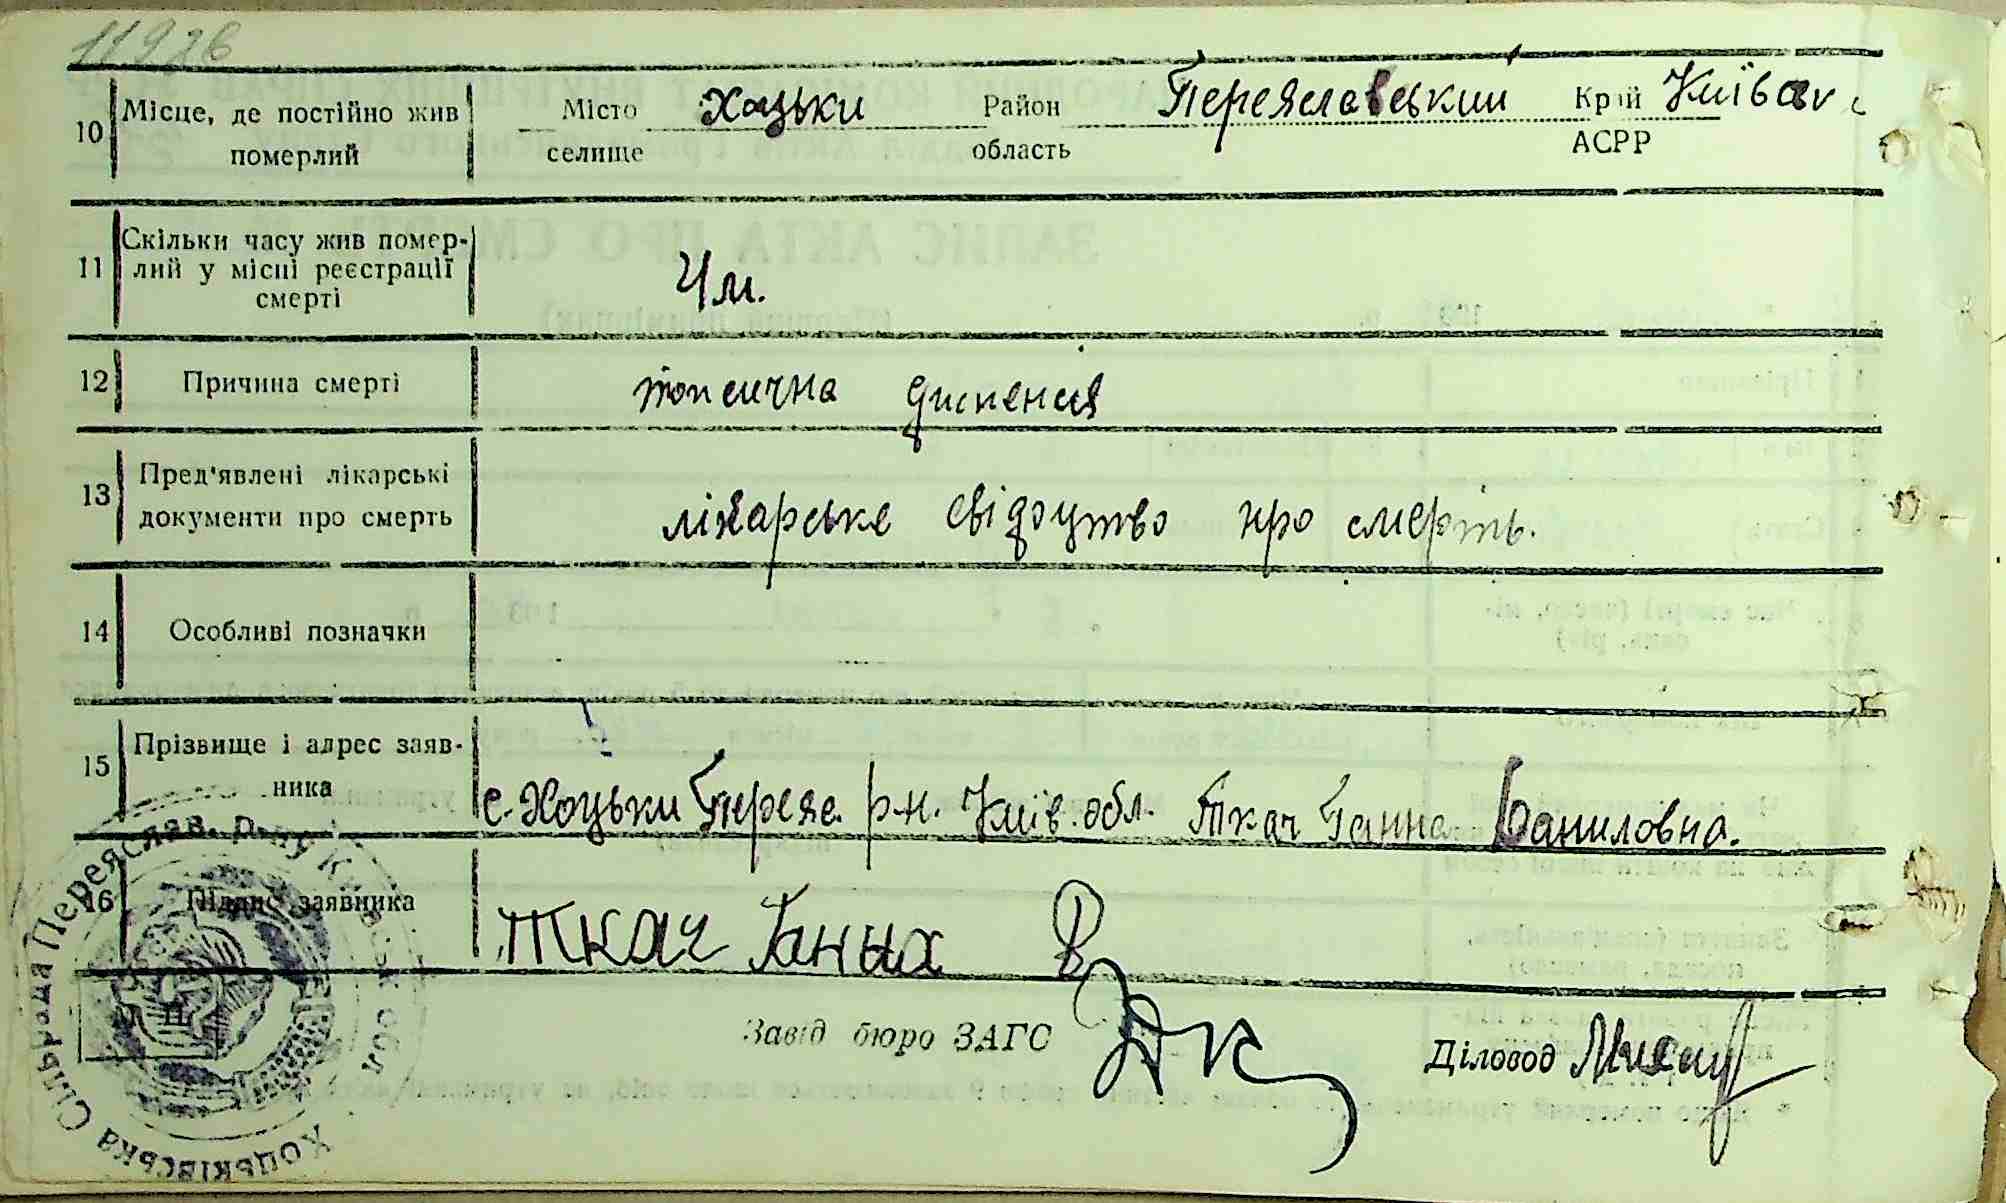 11926
10 Місце, де постійно жив померлий Місто селище Хоцьки Район область Переяславський Край АСРР Київськ
11 Скільки часу жив померлий у місці реєстрації смерті 4 м.
12 Причина смерті токсична диспенсія
13 Пред'явлені лікарські документи про смерть лікарське свідоцтво про смерть.
14 Особливі позначки
15 Прізвище і адрес заявника с. Хоцьки Переяс. р-н. Київ. обл. Ткач Ганна Даниловна.
16 Підпис заявника Ткач Ганна
Завід бюро ЗАГС Діловод
Хоцьківська Сільрада Переяслав. р-ну Київської